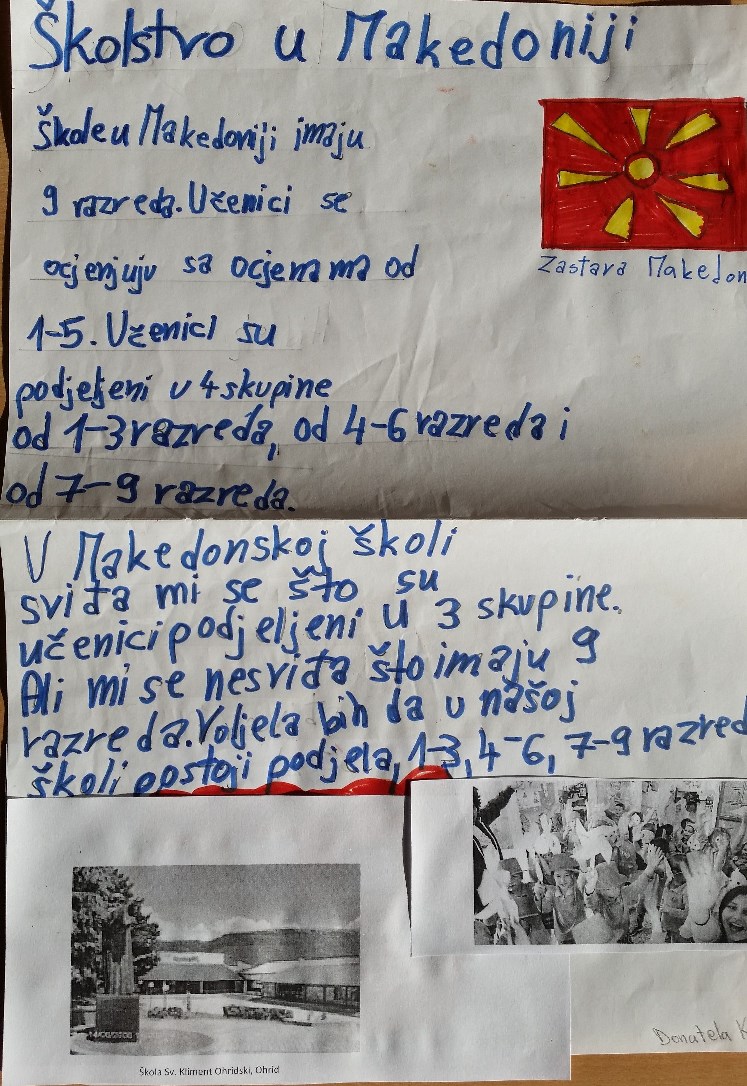 Školstvo u Makedoniji
Škole u Makedoniji imaju
9 razreda. Učenici se
ocjenjuju sa ocjenama od
1-5. Učenici su
podjeljeni u 4 skupine
od 1-3 razreda, od 4-6 razreda i
od 7-9 razreda.
Zastava Makedon
U Makedonskoj školi
sviđa mi se što su
učenici podjeljeni u 3 skupine.
Ali mi se nesviđa što imaju 9
razreda. Voljela bih da u našoj
školi postoji podjela, 1-3, 4-6, 7-9 razred
14/06/2008
Škola Sv. Kliment Ohridski, Ohrid
Donatela K